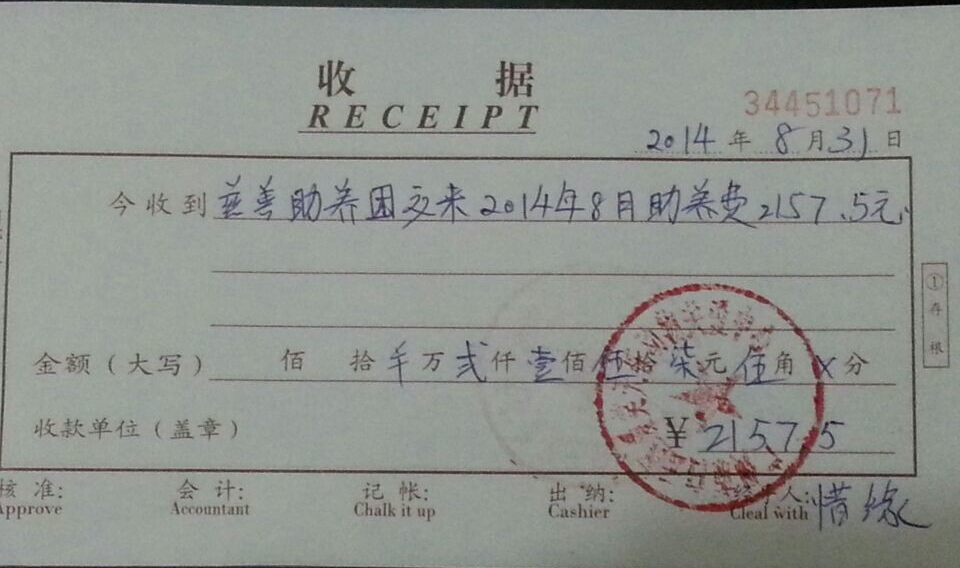 收 据
RECEIPT
34451071
2014 年 8 月 31 日
今收到 慈善助养团交来2014年8月助养费2157.5元
金额（大写） 佰 拾 万 贰 仟 壹 佰 伍 拾 柒 元 伍 角 X 分
收款单位（盖章） ¥ 2157.5
①存根
核 准: 会 计: 记 帐: 出 纳: 经手人: 惜缘
Approve Accountant Chalk it up Cashier Cleal with